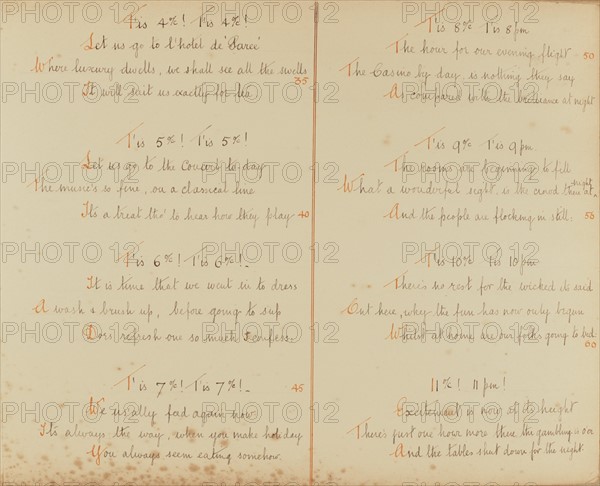 T'is 4 o/c! T'is 4 o/c!
Let us go to l'hotel de Paree'
Where luxury dwells, we shall see all the swells
35
It will suit us exactly for tea
T'is 5 o/c! T'is 5 o/c!
Let us go to the Concert to day
The music's so fine, on a classical line
It's a treat tho' to hear how they play 40
T'is 6 o/c! T'is 6 o/c!
It is time that we went in to dress
A wash & brush up, before going to sup
Does refresh one so much I confess
T'is 7 o/c! T'is 7 o/c! 45
We really feed again now
It's always the way, when you make holiday
You always seem eating somehow.
T'is 8 o/c T'is 8 pm
The hour for our evening flight 50
The Casino by day, is nothing they say
As compared with the brilliance at night
T'is 9 o/c T'is 9 pm
The rooms are beginning to fill
What a wonderful sight, is the crowd there at night
And the people are flocking in still. 55
T'is 10 o/c T'is 10 pm
There's no rest for the wicked it's said
Out here, why the fun has only begun
Whilst at home are our folks going to bed
60
11 o/c! 11 pm!
Excitement is now at its height
There's just one hour more then the gambling is o'er
And the tables shut down for the night.
PHOTO 12